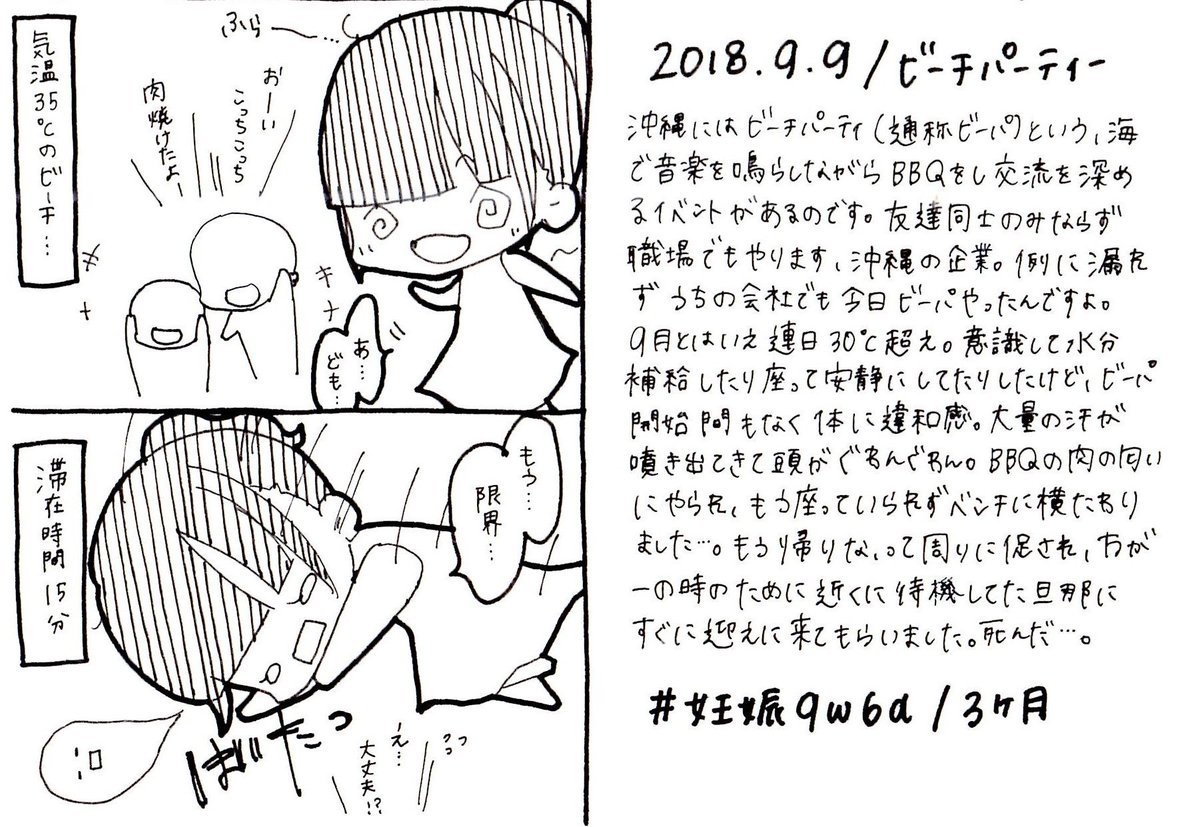 気温35℃のビーチ…
ふら〜…
おーい
こっちこっち
肉焼けたよー
キャ
キャ
あ…
ども…
滞在時間15分
もう…
限界…
ばたっ
え…
大丈夫!?
2018.9.9/ビーチパーティー
沖縄にはビーチパーティ(通称ビーパ)という、海
で音楽を鳴らしながらBBQをし交流を深め
るイベントがあるのです。友達同士のみならず
職場でもやります、沖縄の企業。例に漏れ
ずうちの会社でも今日ビーパやったんですよ。
9月とはいえ連日30℃超え。意識して水分
補給したり座って安静にしてたりしたけど、ビーパ
開始間もなく体に違和感。大量の汗が
噴き出てきて頭がぐわんぐわん。BBQの肉の匂い
にやられ、もう座っていられずベンチに横たわり
ました…。もう帰りなって周りに促され、万が
一の時のために近くに待機してた旦那に
すぐに迎えに来てもらいました。死んだ…。
#妊娠9w6d/3ヶ月